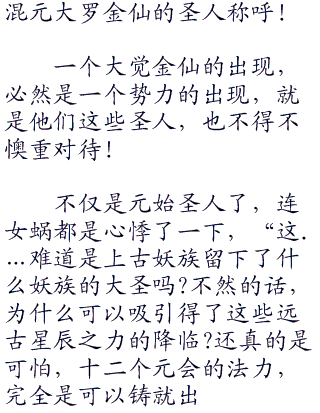 混元大罗金仙的圣人称呼！
一个大觉金仙的出现，
必然是一个势力的出现，就
是他们这些圣人，也不得不
懊重对待！
不仅是元始圣人了，连
女蜗都是心悸了一下，“这.
...难道是上古妖族留下了什
么妖族的大圣吗?不然的话，
为什么可以吸引得了这些远
古星辰之力的降临?还真的是
可怕，十二个元会的法力，
完全是可以铸就出